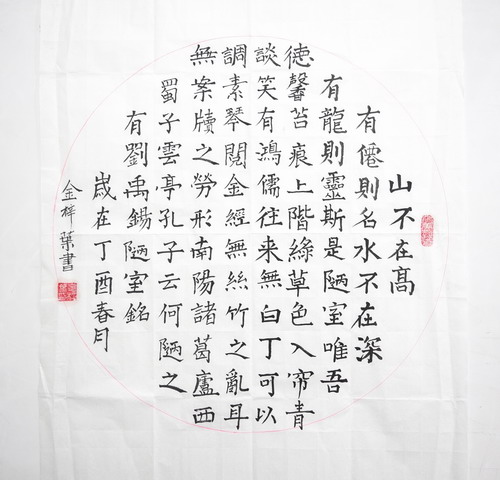 山不在高
有僊則名水不在深
有龍則靈斯是陋室唯吾
德馨苔痕上階綠草色入帘青
談笑有鴻儒往來無白丁可以
調素琴閱金經無絲竹之亂耳
無案牘之勞形南陽諸葛廬西
蜀子雲亭孔子云何陋之
有劉禹錫陋室銘
歲在丁酉春月
金葉書